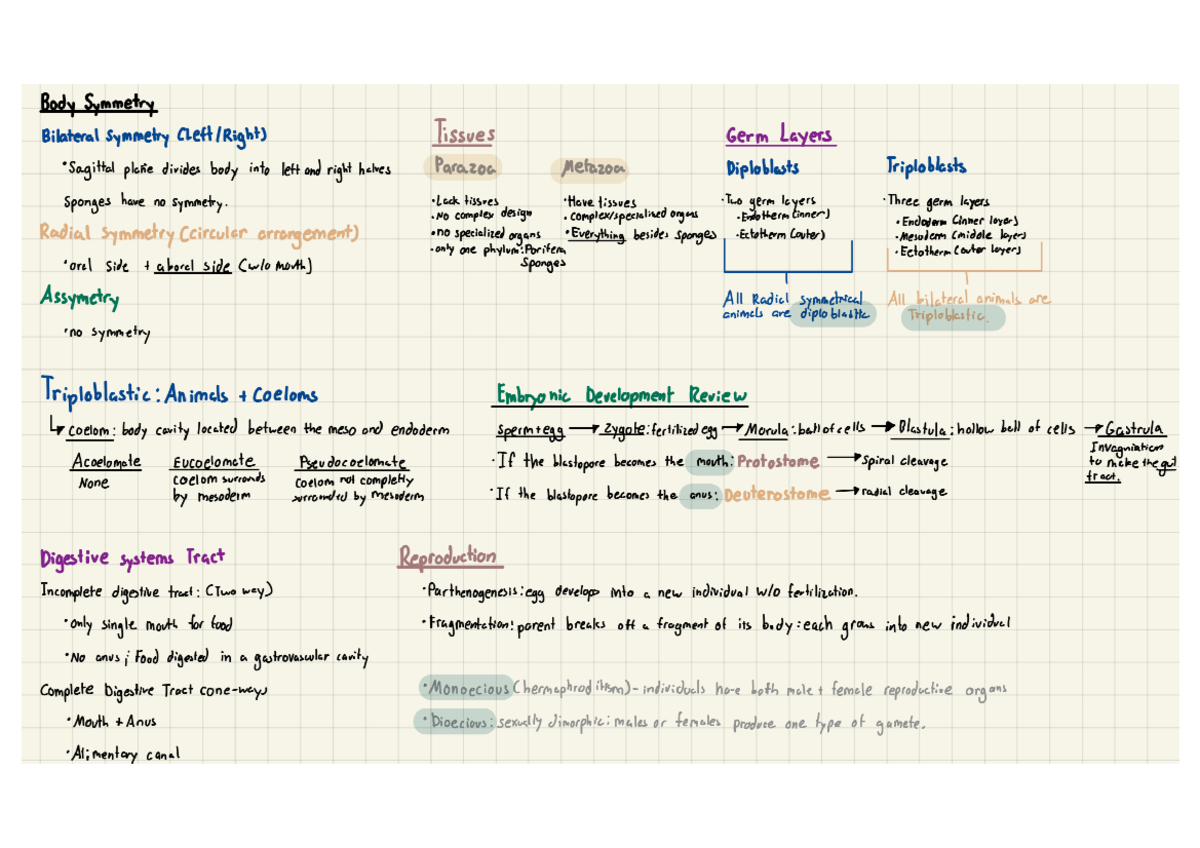 Body Symmetry
Bilateral Symmetry (Left/Right)
•Sagittal plane divides body into left and right halves
Sponges have no symmetry.
Radial Symmetry (circular arrangement)
•oral side + aboral side (w/o mouth)
Assymetry
•no symmetry
Tissues
Parazoa
•Lack tissues
•No complex design
•no specialized organs
•only one phylum: Porifera
Sponges
Metazoa
•Have tissues
•complex/specialized organs
•Everything besides sponges
Germ Layers
Diploblasts
•Two germ layers
•Endotherm (inner)
•Ectotherm (outer)
All Radial symmetrical
animals are diploblastic
Triploblasts
•Three germ layers
•Endoderm (inner layer)
•Mesoderm (middle layer)
•Ectotherm (outer layer)
All bilateral animals are
Triploblastic.
Triploblastic: Animals + Coeloms
Coelom: body cavity located between the meso and endoderm
Acoelomate
None
Eucoelomate
coelom surrounds
by mesoderm
Pseudocoelomate
Coelom not completly
surrounded by mesoderm
Embryonic Development Review
Sperm+egg → Zygote: fertilized egg → Morula: ball of cells → Blastula: hollow ball of cells → Gastrula
Invagniation
to make the gut
tract.
•If the blastopore becomes the mouth: Protostome → Spiral cleavage
•If the blastopore becomes the anus: Deuterostome → radial cleavage
Digestive systems Tract
Incomplete digestive tract: (Two way)
•only single mouth for food
•No anus; Food digested in a gastrovascular cavity
Complete Digestive Tract (one-way)
•Mouth + Anus
•Alimentary canal
Reproduction
•Parthenogenesis: egg develops into a new individual w/o fertilization.
•Fragmentation: parent breaks off a fragment of its body: each grows into new individual
•Monoecious (hermaphroditism) - individuals have both male + female reproductive organs
•Dioecious: sexually dimorphic: males or females produce one type of gamete.